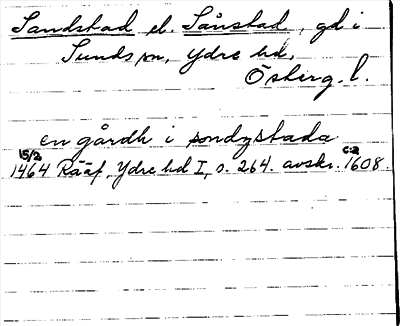 Sandstad el. Sånstad, gd i
Sunds sn, Ydre hd,
Österg. l.
en gårdh i sondzstada
15/2 c:a
1464 Rääf, Ydre hd I, s. 264. avskr. 1608.